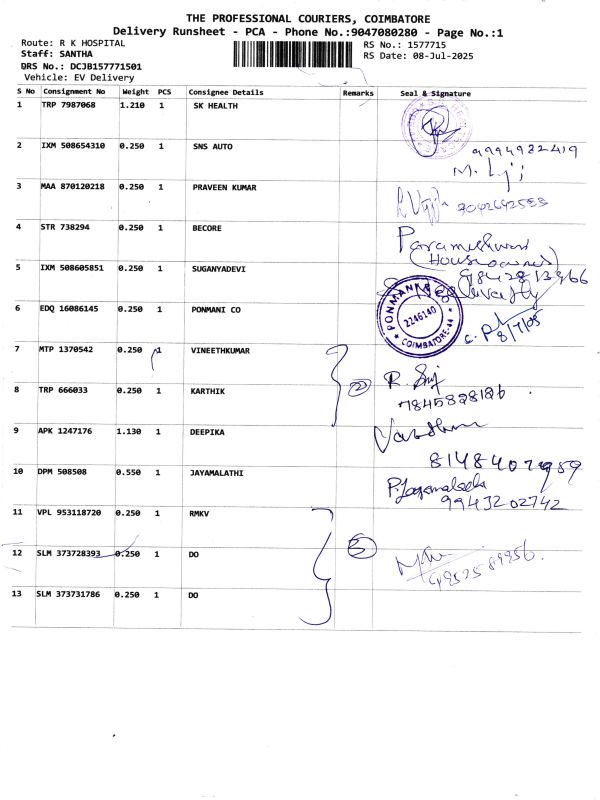 THE PROFESSIONAL COURIERS, COIMBATORE
Delivery Runsheet - PCA - Phone No.:9047080280 - Page No.:1
Route: R K HOSPITAL
RS No.: 1577715
Staff: SANTHA
RS Date: 08-Jul-2025
DRS No.: DCJB157771501
Vehicle: EV Delivery
S No Consignment No Weight PCS Consignee Details Remarks Seal & Signature
1 TRP 7987068 1.210 1 SK HEALTH
2 IXM 508654310 0.250 1 SNS AUTO 9994982419
3 MAA 870120218 0.250 1 PRAVEEN KUMAR
4 STR 738294 0.250 1 BECORE Parameshwari
(House owner)
9842813966
5 IXM 508605851 0.250 1 SUGANYADEVI
6 EDQ 16086145 0.250 1 PONMANI CO PONMANI & CO 2246140 COIMBATORE-44
7 MTP 1370542 0.250 1 VINEETHKUMAR
8 TRP 666033 0.250 1 KARTHIK 2 7845828126
9 APK 1247176 1.130 1 DEEPIKA
8148407989
10 DPM 508508 0.550 1 JAYAMALATHI
9943202742
11 VPL 953118720 0.250 1 RMKV
12 SLM 373728393 0.250 1 DO 3
13 SLM 373731786 0.250 1 DO